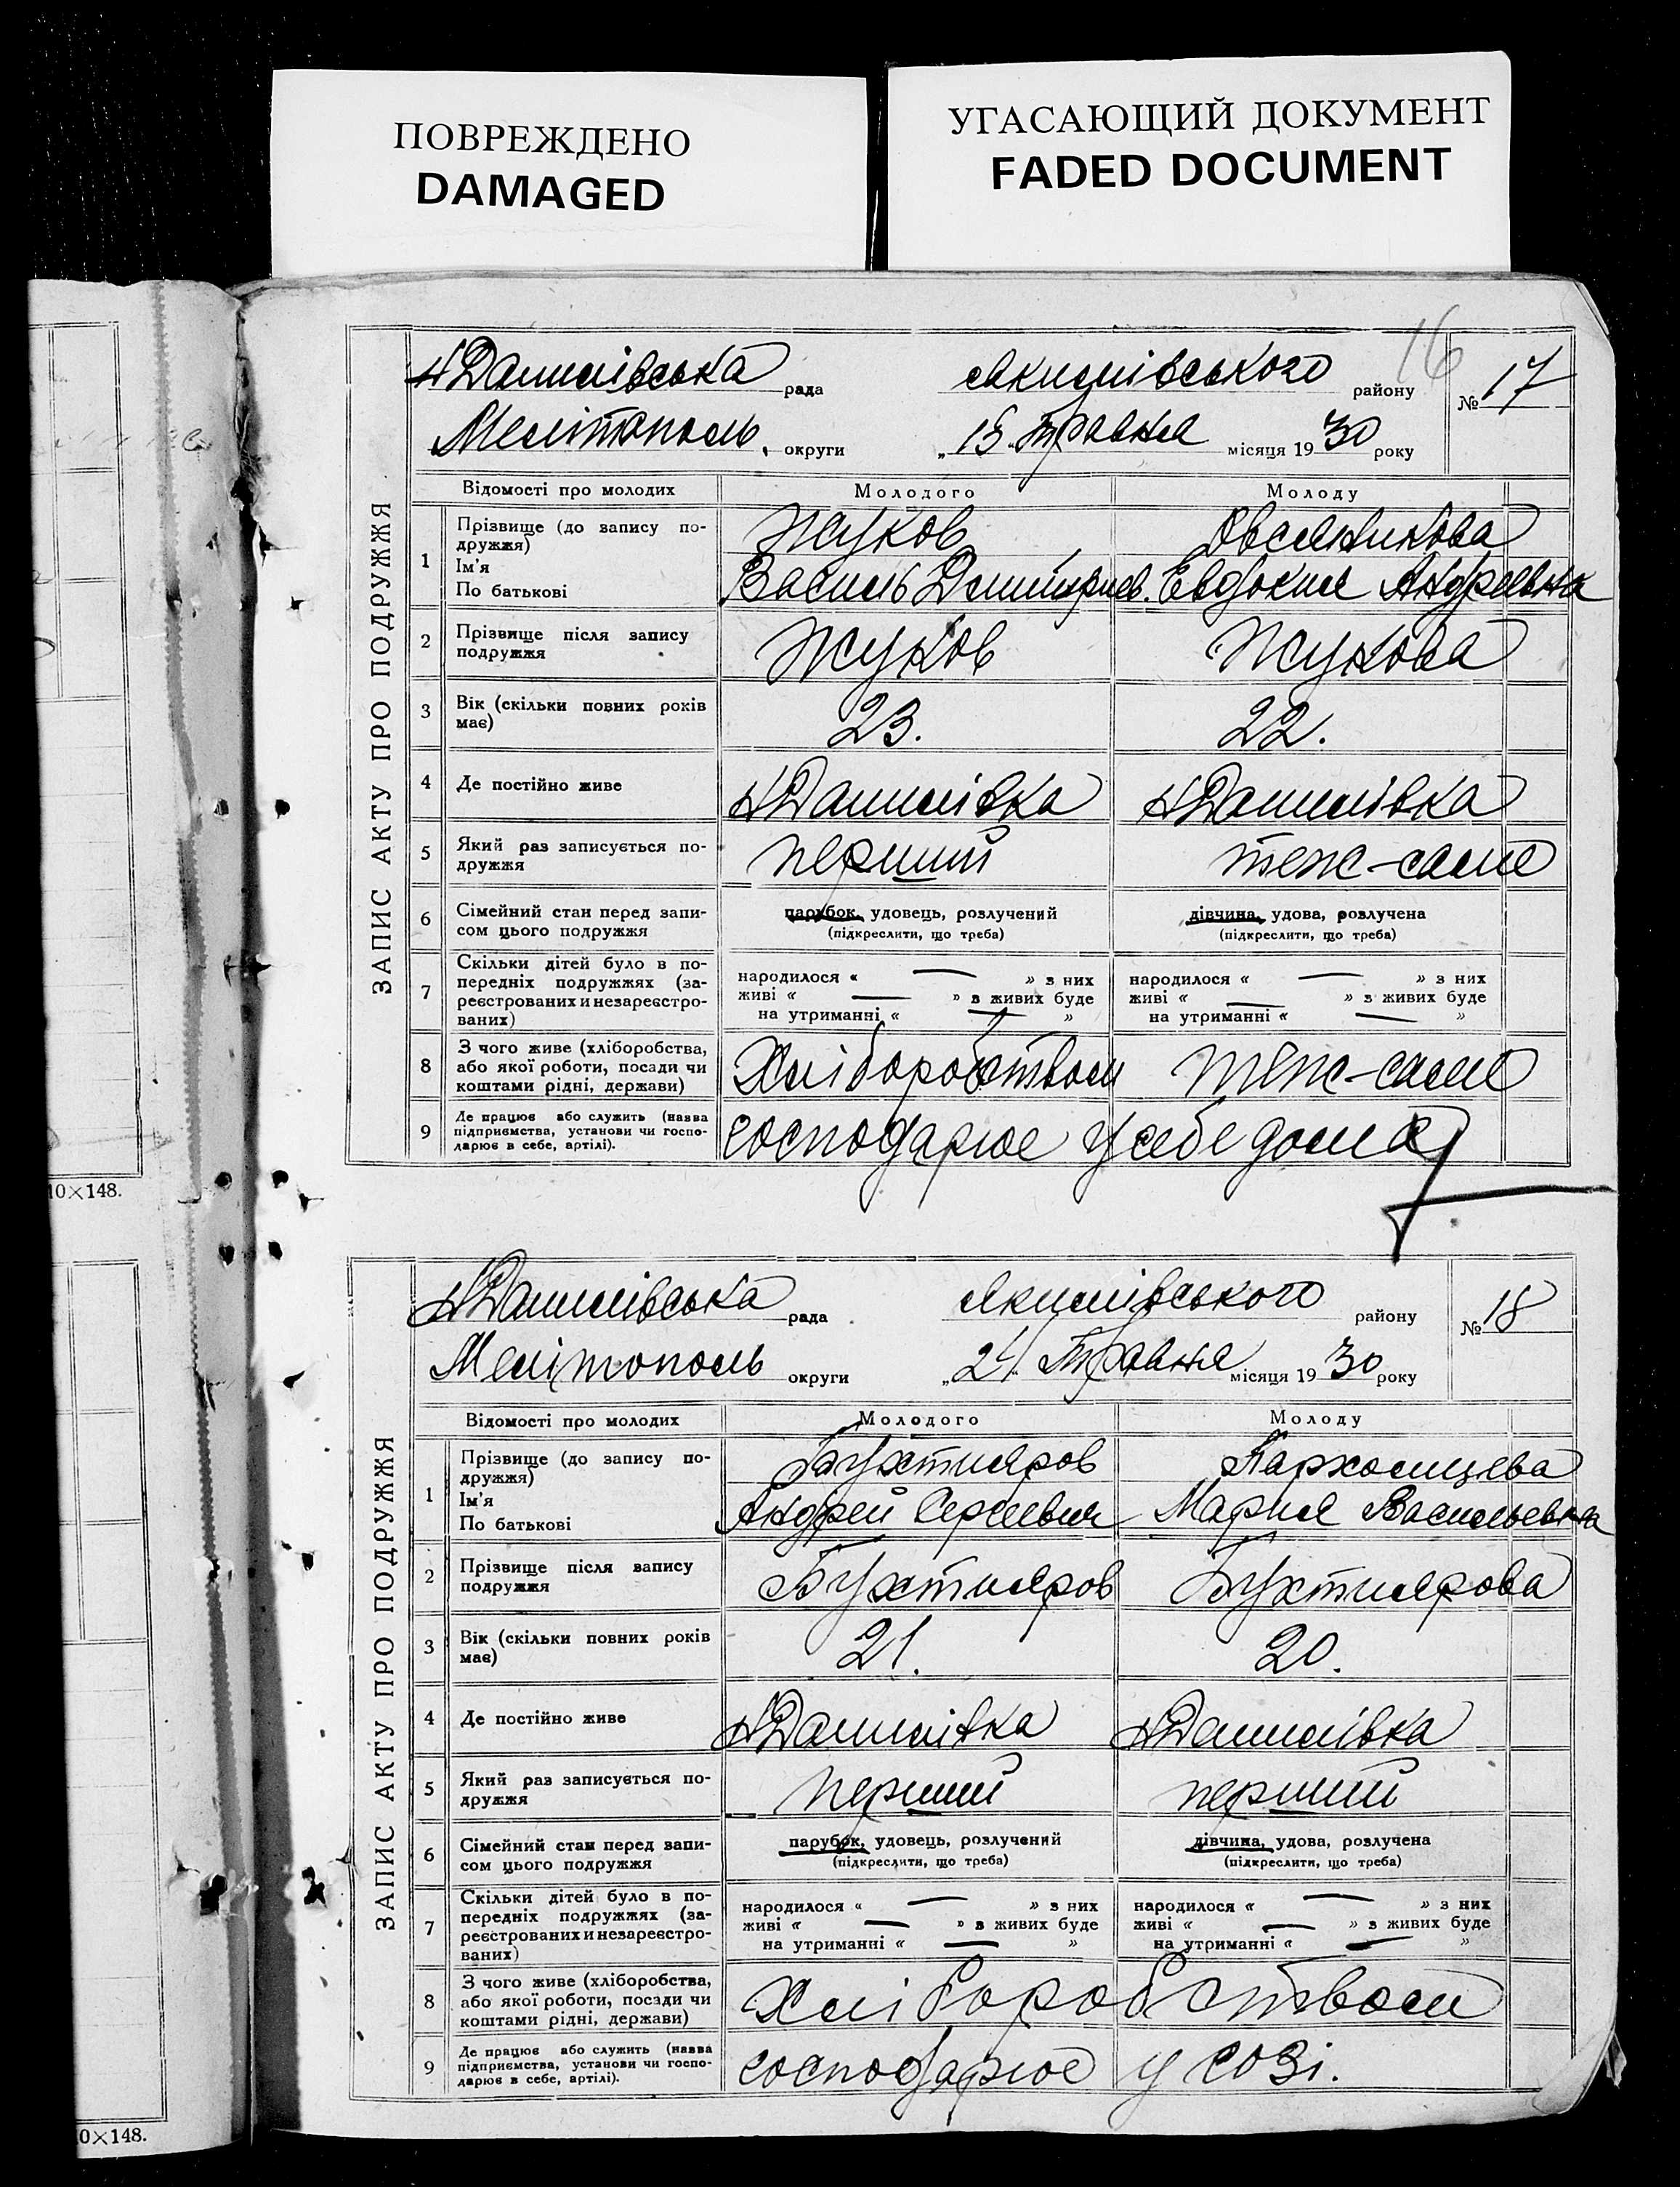 ПОВРЕЖДЕНО
DAMAGED
УГАСАЮЩИЙ ДОКУМЕНТ
FADED DOCUMENT
16
ЗАПИС АКТУ ПРО ПОДРУЖЖЯ
НДанилівська рада Якимівського району № 17
Мелітополь округи „15" Травня місяця 1930 року
Відомості про молодих Молодого Молоду
1 Прізвище (до запису подружжя) Жуков Овсяникова
Ім'я
По батькові Василь Дмитриев. Евдокия Андреевна
2 Прізвище після запису подружжя Жуков Жукова
3 Вік (скільки повних років має) 23. 22.
4 Де постійно живе НДанилівка НДанилівка
5 Який раз записується подружжя перший теж-саме
6 Сімейний стан перед записом цього подружжя парубок, удовець, розлучений дівчина, удова, розлучена
(підкреслити, що треба) (підкреслити, що треба)
7 Скільки дітей було в попередніх подружжях (зареєстрованих и незареєстрованих) народилося « — » з них народилося « — » з них
живі « — » з живих буде живі « — » з живих буде
на утриманні « — » на утриманні « — »
8 З чого живе (хліборобства, або якої роботи, посади чи коштами рідні, держави) Хліборобством теж-саме
9 Де працює або служить (назва підприємства, установи чи господарює в себе, артілі). господарює у себе дома
10×148.
ЗАПИС АКТУ ПРО ПОДРУЖЖЯ
НДанилівська рада Якимівського району № 18
Мелітополь округи Травня місяця 1930 року
Відомості про молодих Молодого Молоду
1 Прізвище (до запису подружжя) Бухтияров Пархоменцева
Ім'я
По батькові Андрей Сергеевич Мария Васильевна
2 Прізвище після запису подружжя Бухтияров Бухтиярова
3 Вік (скільки повних років має) 21. 20.
4 Де постійно живе НДанилівка НДанилівка
5 Який раз записується подружжя перший перший
6 Сімейний стан перед записом цього подружжя парубок, удовець, розлучений дівчина, удова, розлучена
(підкреслити, що треба) (підкреслити, що треба)
7 Скільки дітей було в попередніх подружжях (зареєстрованих и незареєстрованих) народилося « — » з них народилося « — » з них
живі « — » з живих буде живі « — » з живих буде
на утриманні « — » на утриманні « — »
8 З чого живе (хліборобства, або якої роботи, посади чи коштами рідні, держави) Хліборобством
9 Де працює або служить (назва підприємства, установи чи господарює в себе, артілі). господарює у созі.
0×148.